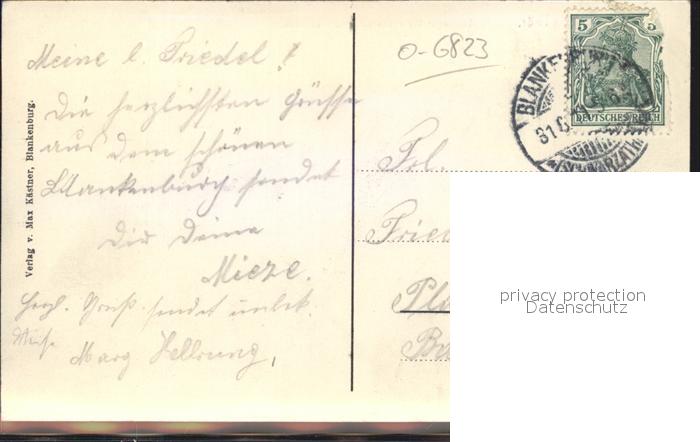 Meine l. Friedel!
Die herzlichsten Grüsse
aus dem schönen
Blankenburg sendet
Dir Deine
Mieze.
Herzl. Gruß sendet unbek.
Marg Hellwung,
Verlag v. Max Kästner, Blankenburg.
0-6823
5 5
DEUTSCHES REICH
BLANKENBURG
31
(SCHWARZATH
Frl.
Fried
Pl
B
privacy protection
Datenschutz